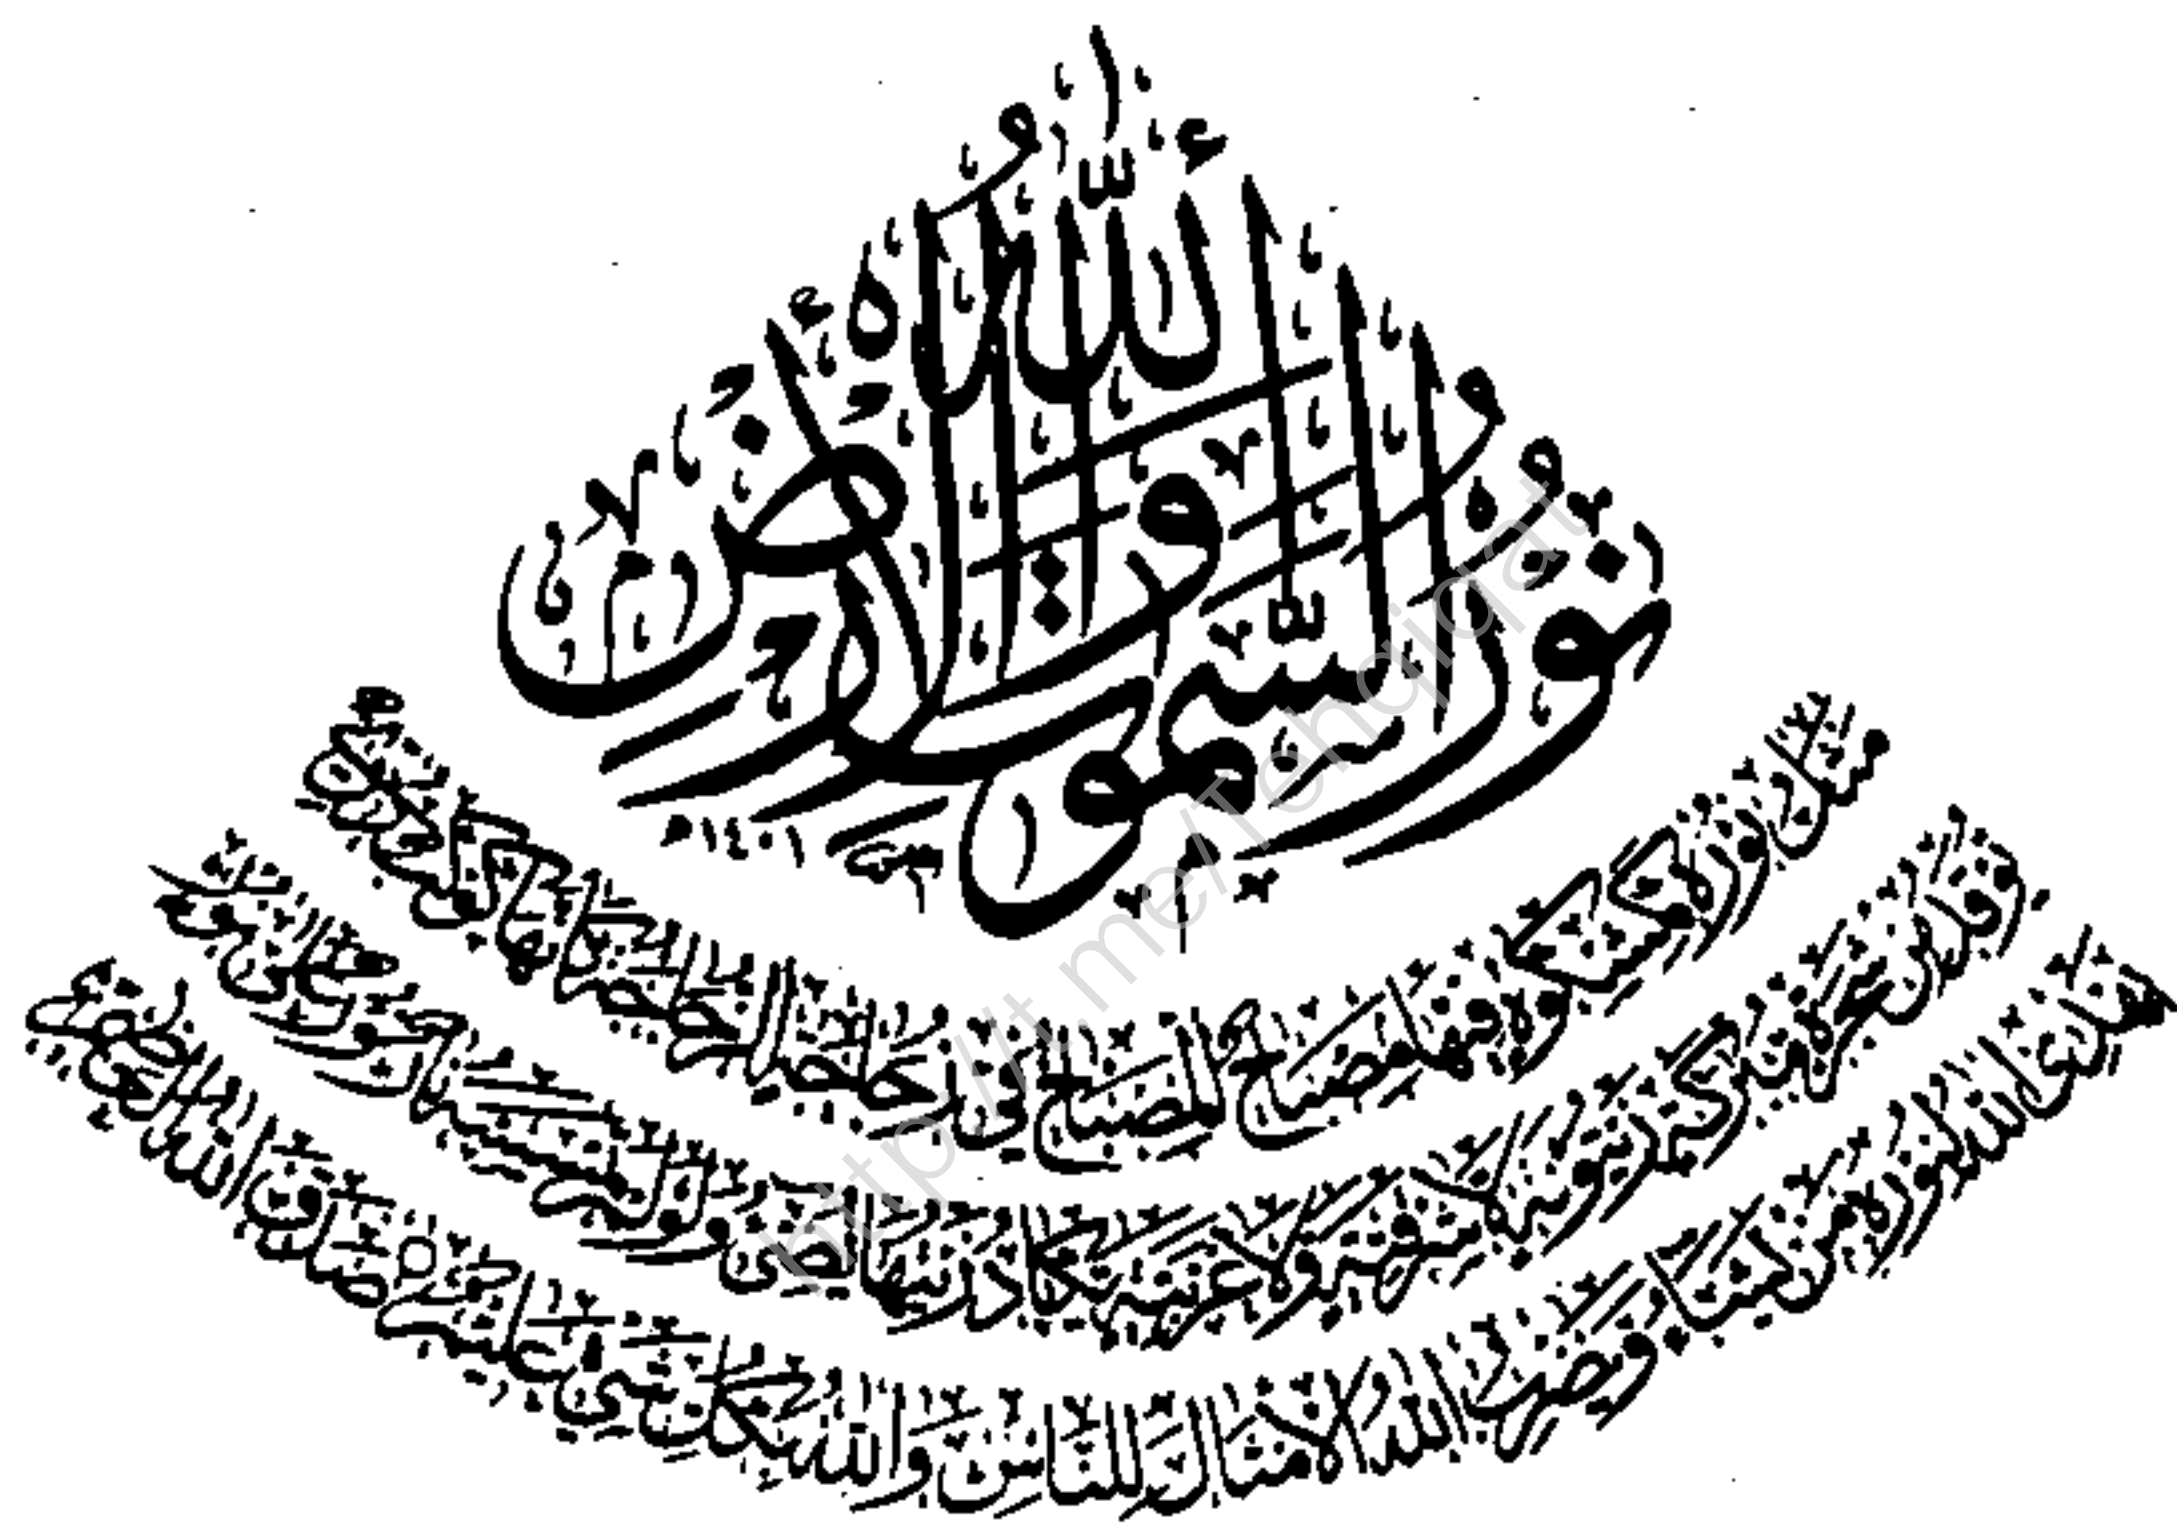 الله نور السموات والأرض
١٤٠١
مثل نوره كمشكوة فيها مصباح المصباح في زجاجة الزجاجة كأنها كوكب دري
يوقد من شجرة مباركة زيتونة لا شرقية ولا غربية يكاد زيتها يضيء ولو لم تمسسه نار نور على نور
يهدي الله لنوره من يشاء ويضرب الله الأمثال للناس والله بكل شيء عليم صدق الله العظيم
http://t.me/Tehqiqat